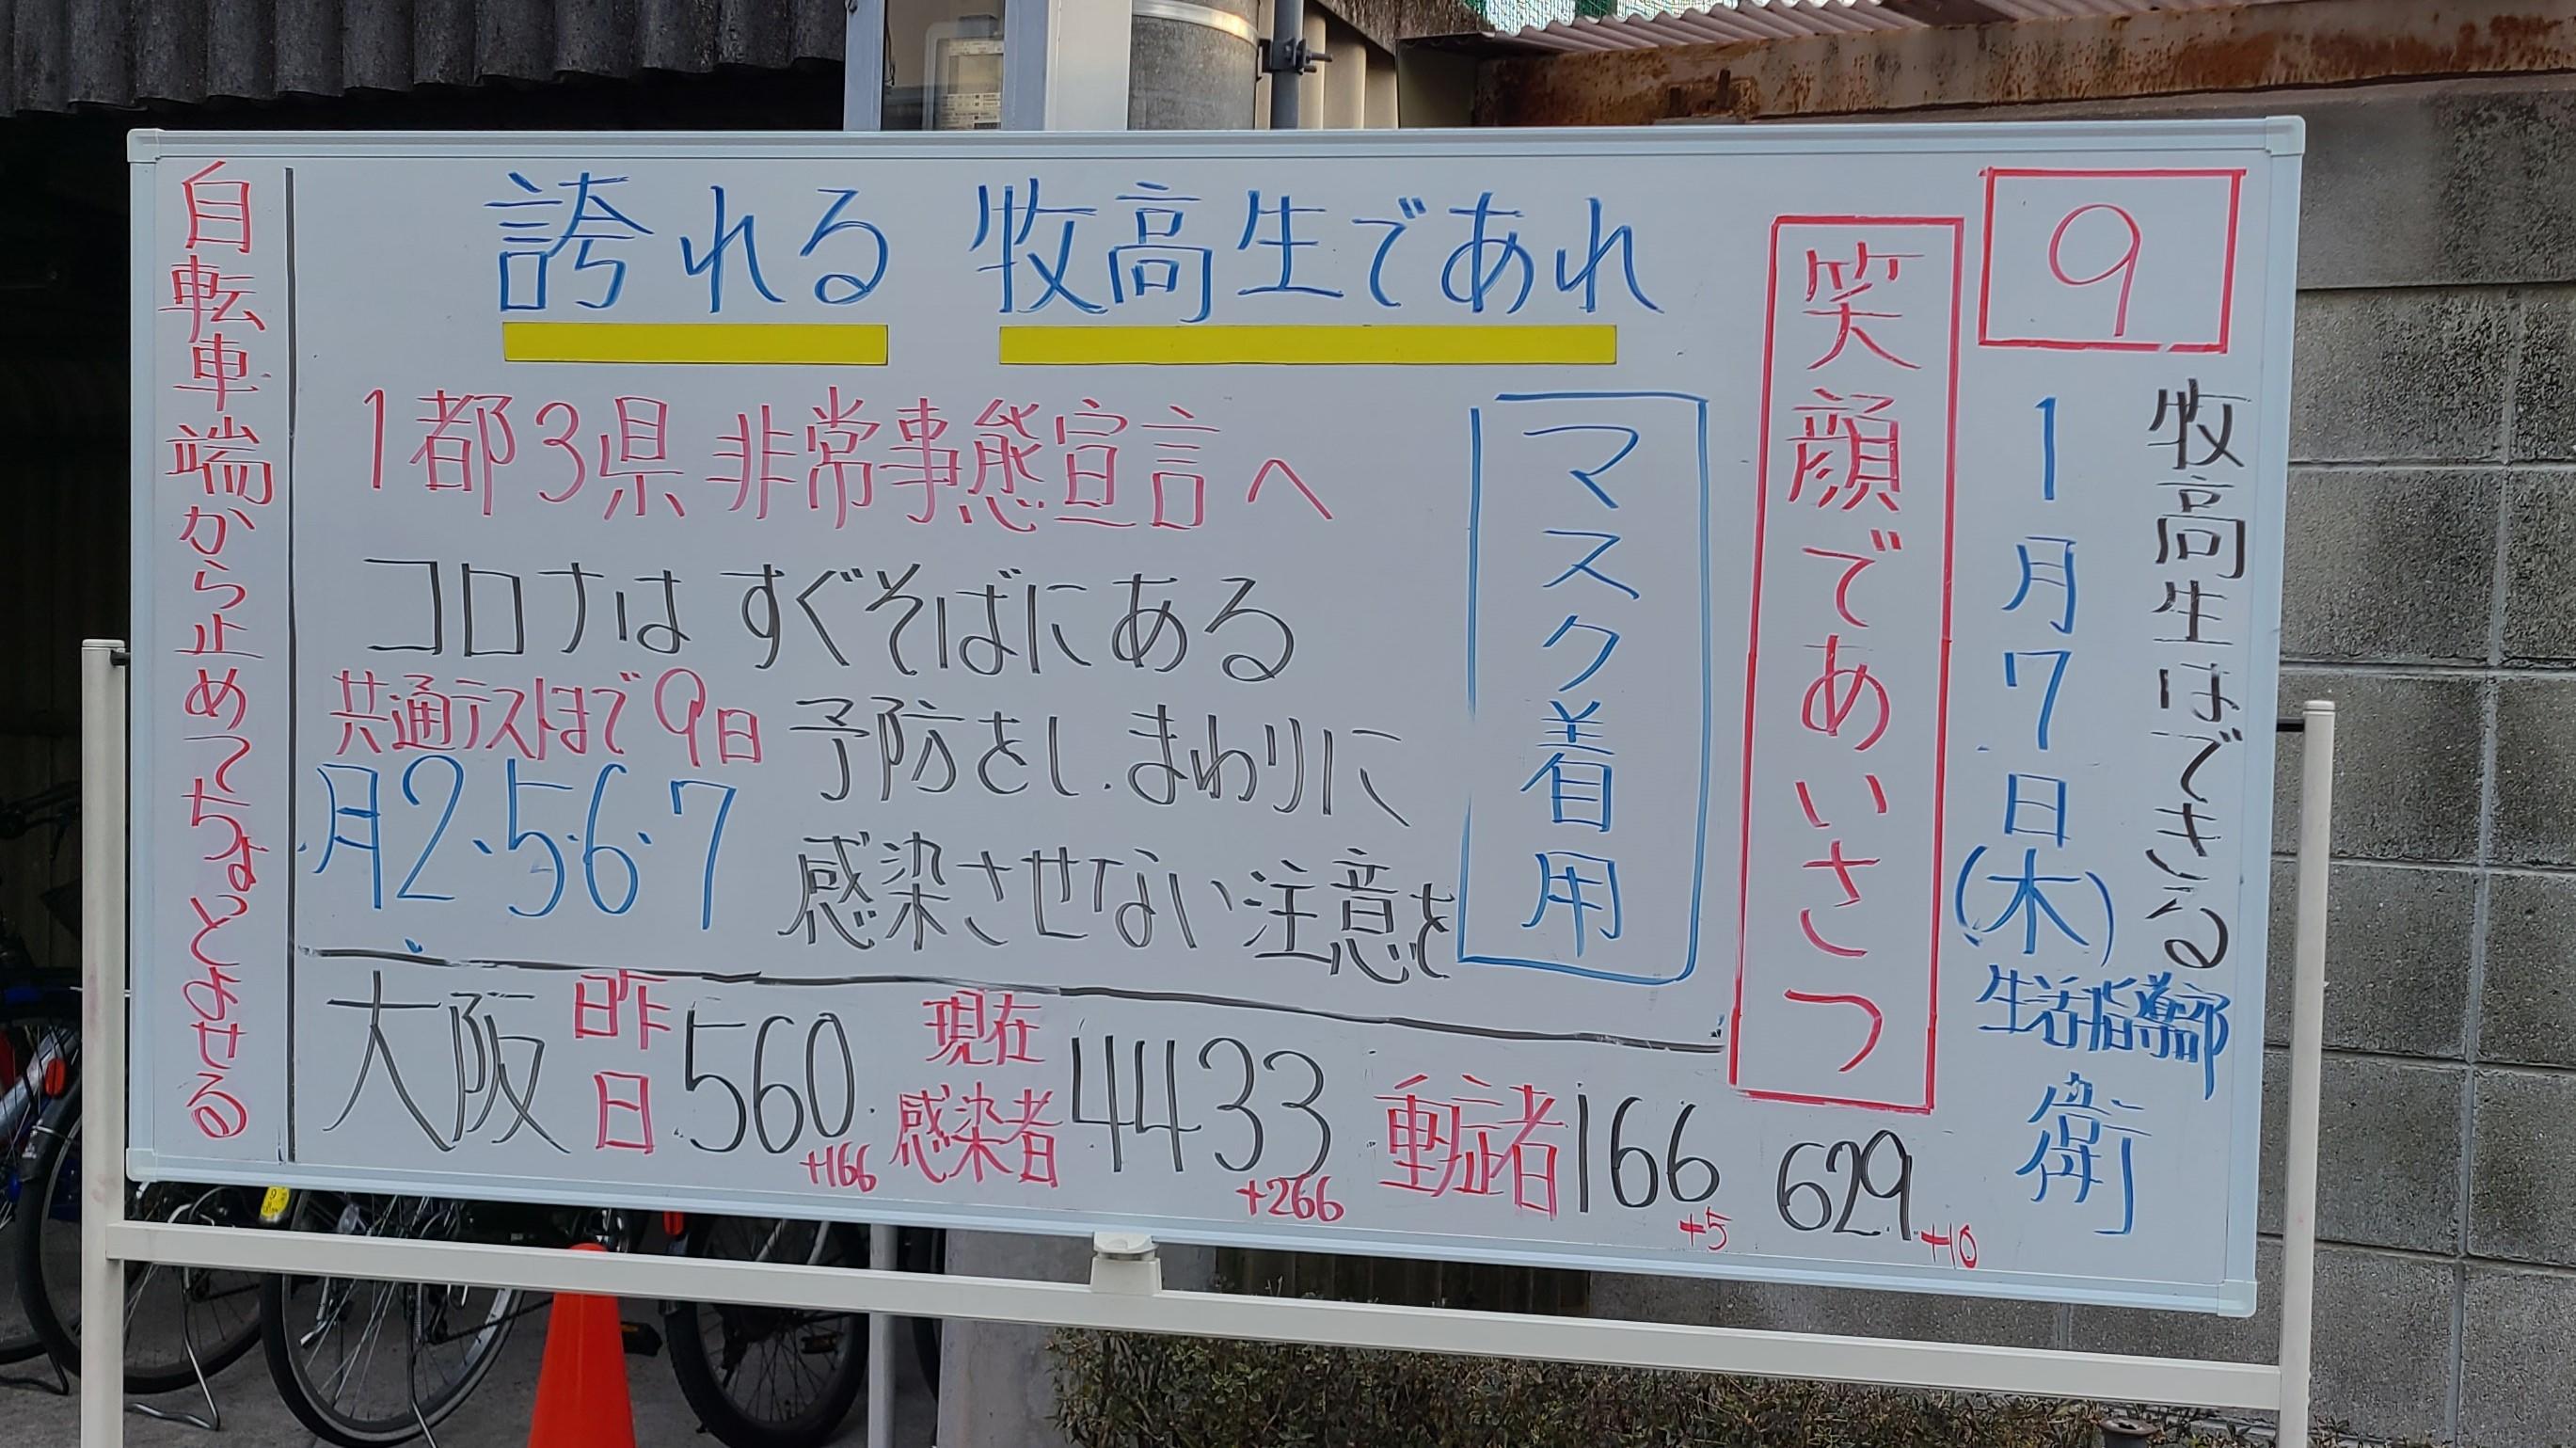 9
牧高生はできる
1月7日(木)
生活指導部
衛
笑顔であいさつ
誇れる 牧高生であれ
マスク着用
1都3県 非常事態宣言へ
コロナは すぐそばにある
予防をし、まわりに
感染させない注意を
共通テストまで9日
月2・5・6・7
大阪 昨日 560 +166 現在感染者 4433 +266 重症者 166 +5 629 +10
自転車端から止めてちょとよせる